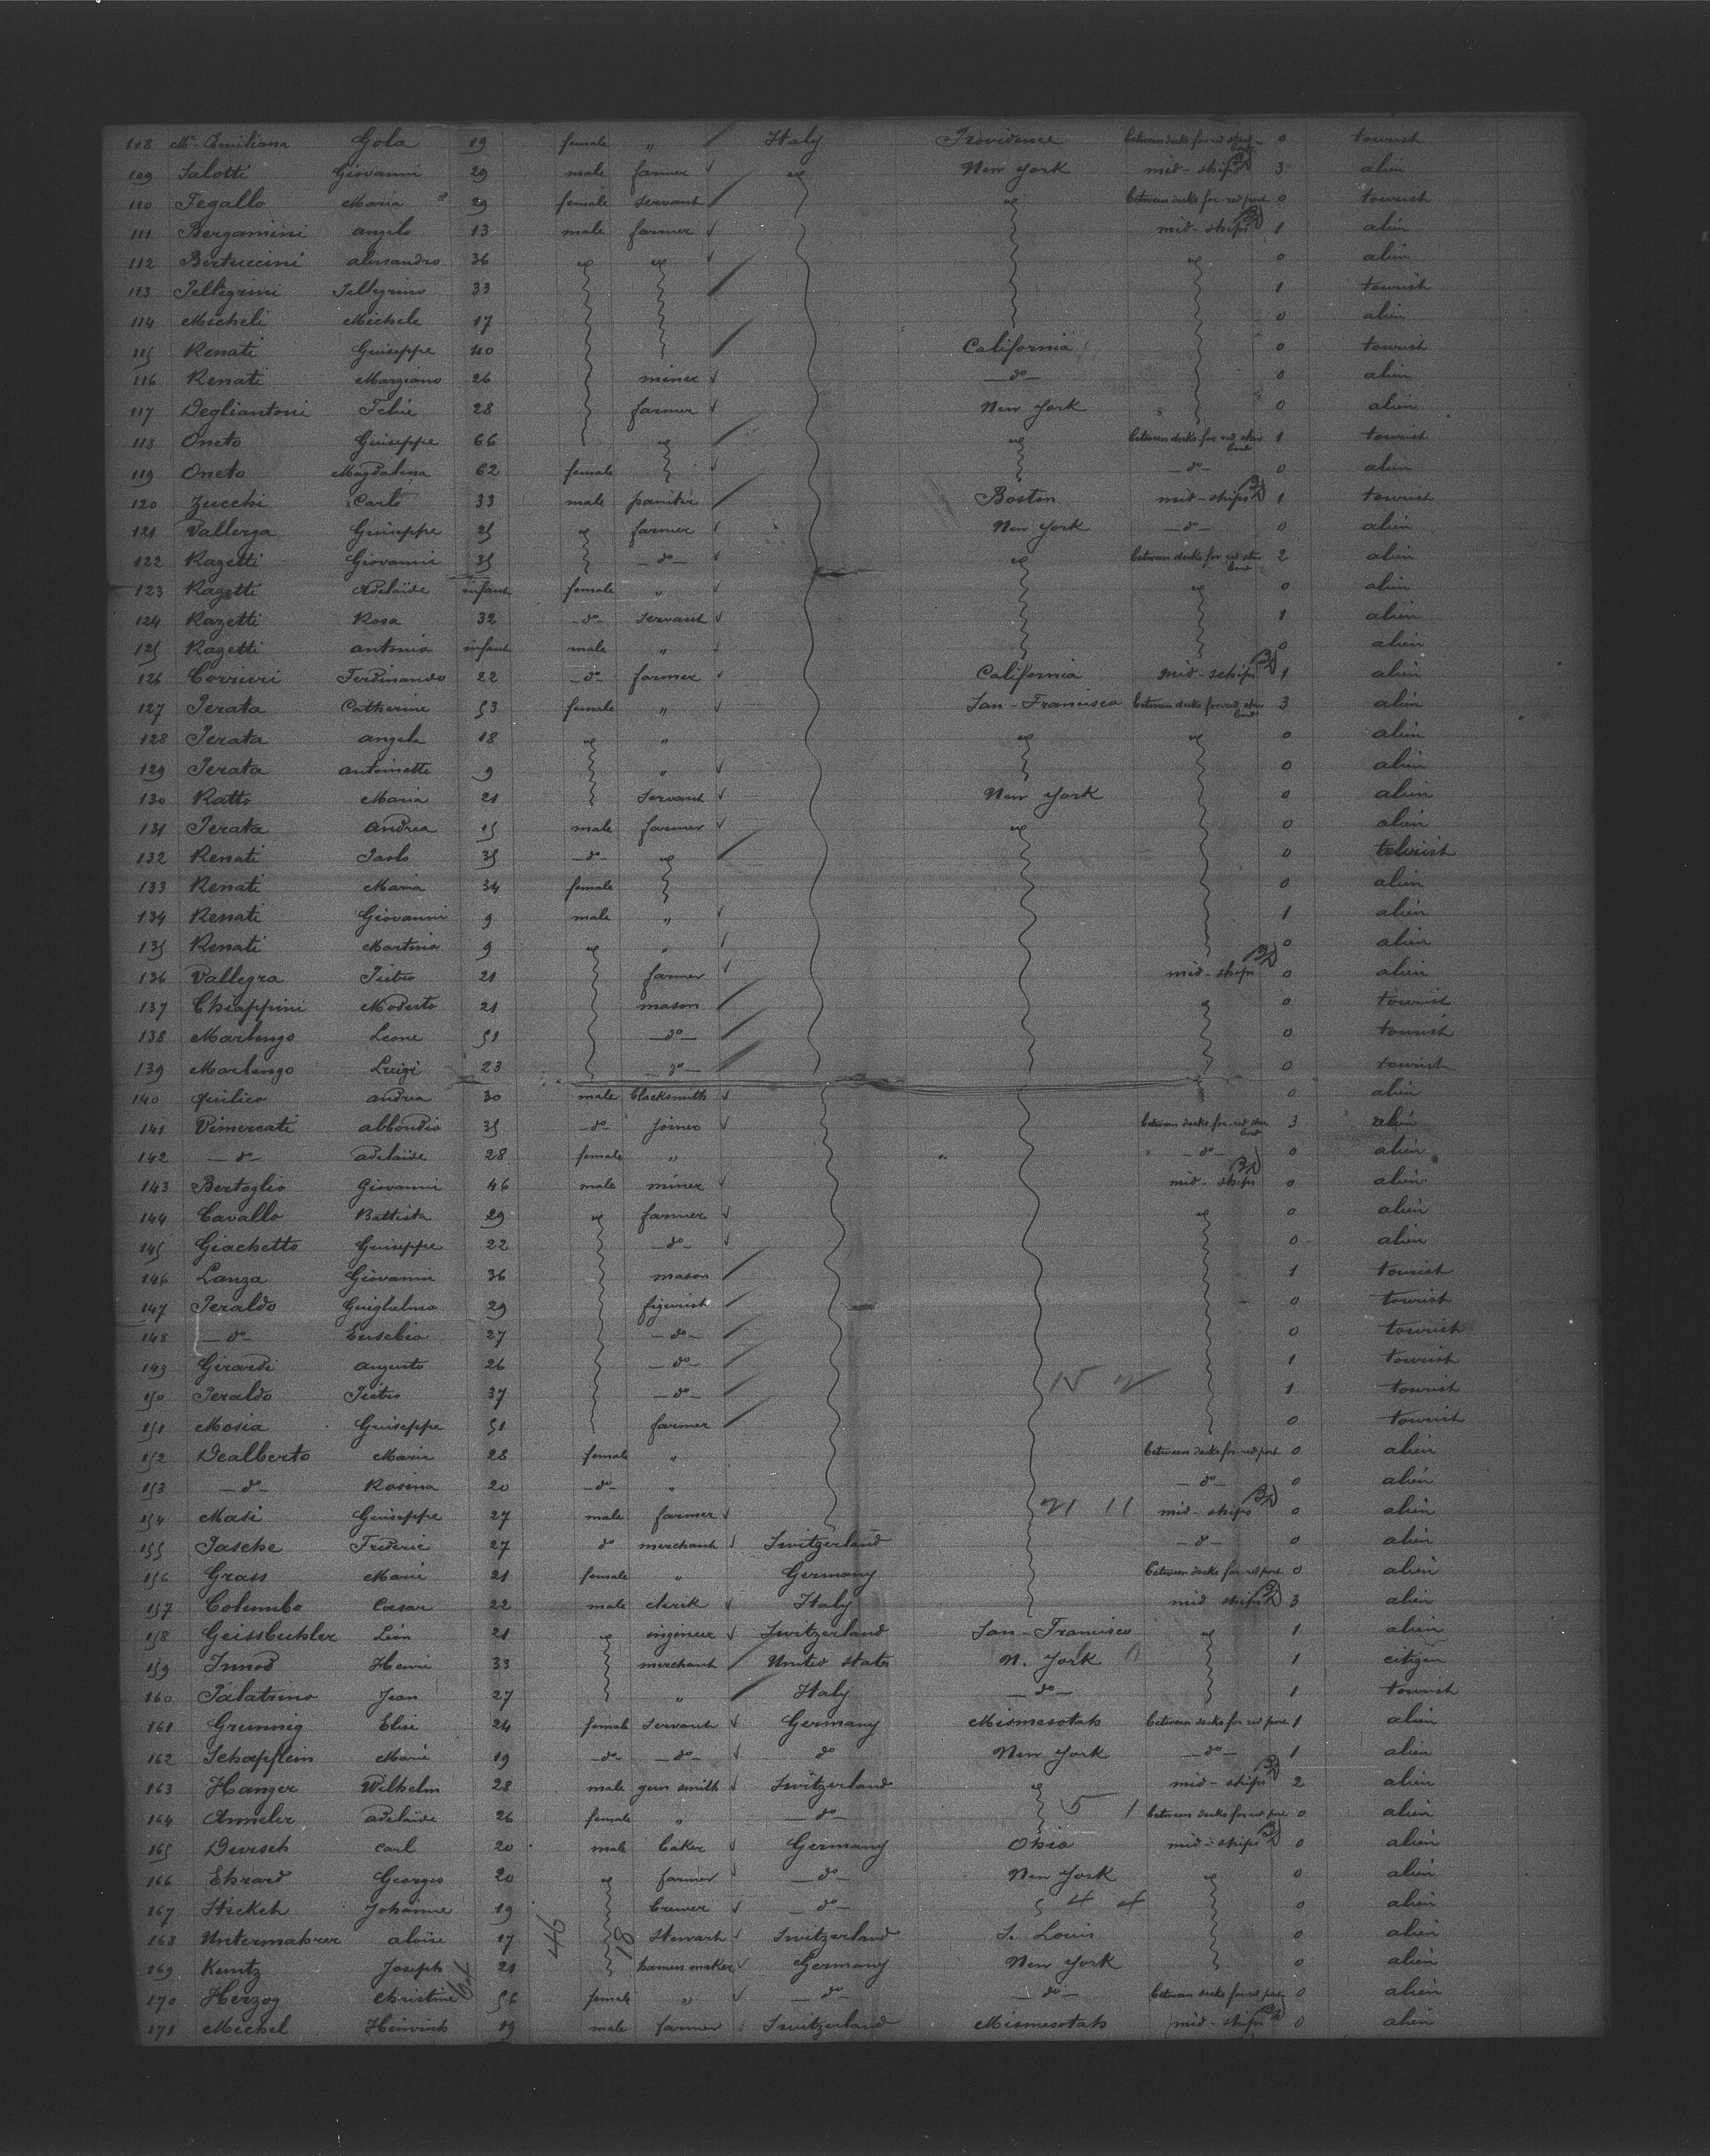 108 Me. Emiliana Gola 19 female " Italy Providence between decks for red star-board 0 tourist
109 Salotti Giovanni 29 male farmer New York mid-ships 3 alien
110 Fegallo Maria 29 female servant between decks for red port 0 tourist
111 Bergamini angelo 13 male farmer mid-ships 1 alien
112 Bertuccini alessandro 36 0 alien
113 Pellegrini Pellegrino 33 1 tourist
114 Micheli Michele 17 0 alien
115 Renati Guiseppe 40 California 0 tourist
116 Renati Marziano 26 miner -do- 0 alien
117 Degliantoni Felix 28 farmer New York 0 alien
118 Oneto Guiseppe 66 between decks for red star board 1 tourist
119 Oneto Magdalena 62 female -do- 0 alien
120 Zucchi Carlo 33 male paniter Boston mid-ships 1 tourist
121 Vallerga Guiseppe 25 farmer New York -do- 0 alien
122 Razetti Giovanni 35 -do- between decks for red star board 2 alien
123 Razetti Adelaïde infant female " 0 alien
124 Razetti Rosa 32 -do- Servant 1 alien
125 Razetti antonio infant male " 0 alien
126 Corrieri Ferdinando 22 -do- farmer California mid-schips 1 alien
127 Perata Catherine 53 female " San-Francisco between decks for red star board 3 alien
128 Perata angela 18 " 0 alien
129 Perata antoinette 9 " 0 alien
130 Ratto Maria 21 Servant New York 0 alien
131 Perata andrea 15 male farmer 0 alien
132 Renati Paolo 35 -do- 0 tourist
133 Renati Maria 34 female 0 alien
134 Renati Giovanni 9 male " 1 alien
135 Renati Martino 9 " 0 alien
136 Vallegra Pietro 21 farmer mid-ships 0 alien
137 Chiappini Modesto 21 mason 0 tourist
138 Marlengo Leone 51 -do- 0 tourist
139 Marlengo Luigi 23 -do- 0 tourist
140 Quilico andrea 30 male blacksmith 0 alien
141 Vimercati abbondio 35 -do- joiner between decks for red star board 3 alien
142 -do- adelaïde 28 female " -do- 0 alien
143 Bertoglio Giovanni 46 male miner mid-ships 0 alien
144 Cavallo Battista 29 farmer 0 alien
145 Giachetto Guiseppe 22 -do- 0 alien
146 Lanza Giovanni 36 mason 1 tourist
147 Peraldo Guiglielmo 29 figurist 0 tourist
148 -do- Eusebio 27 -do- 0 tourist
149 Girardi augusto 26 -do- 1 tourist
150 Peraldo Pietro 37 -do- 1 tourist
151 Mosia Guiseppe 51 farmer 0 tourist
152 Dealberto Maria 28 female " between decks for red port 0 alien
153 -do- Rosina 20 -do- " -do- 0 alien
154 Masi Guiseppe 27 male farmer 21 11 mid-ships 0 alien
155 Pasche Frederic 27 do merchant Switzerland -do- 0 alien
156 Grass Marie 21 female " Germany between decks for red port 0 alien
157 Columbo Cæsar 22 male clerck Italy mid ships 3 alien
158 Geissbuhler Léon 21 ingineur Switzerland San-Francisco 1 alien
159 Junod Henri 33 merchant United States N. York 1 citizen
160 Palatrino Jean 27 " Italy -do- 1 tourist
161 Grunnig Elise 24 female Servant Germany Mismesotah between decks for red port 1 alien
162 Schæpflein Marie 19 -do- -do- do New York -do- 1 alien
163 Hanger Wilhelm 28 male gun smith Switzerland mid-ships 2 alien
164 Anneler adelaïde 26 female " -do- 5 1 between decks for red port 0 alien
165 Dursch Carl 20 male baker Germany Ohio mid-ships 0 alien
166 Ehrard Georges 20 farmer -do- New York 0 alien
167 Stickch Johanne 19 brewer -do- 4 4 0 alien
168 Untermahrer aloïse 17 46 18 Stewart Switzerland S. Louis 0 alien
169 Kuntz Joseph 21 harnen maker Germany New York 0 alien
170 Herzog Christine 56 female " -do- -do- between decks for red port 0 alien
171 Michel Heinrich 19 male farmer Switzerland Mismesotah mid-ships 0 alien